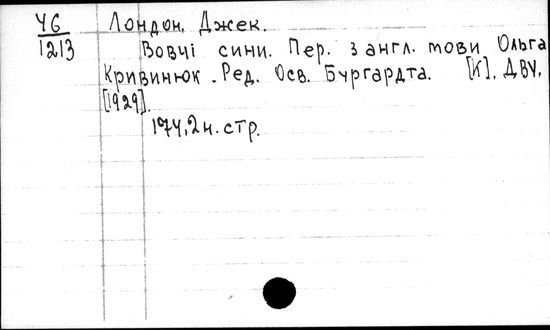 У6 Лондон, Джек.
1213 Вовчі сини. Пер. з англ. мови Ольга
Кривинюк. Ред. Осв. Бургардта. [К], ДВУ,
[1929].
174, 2 н. стр.